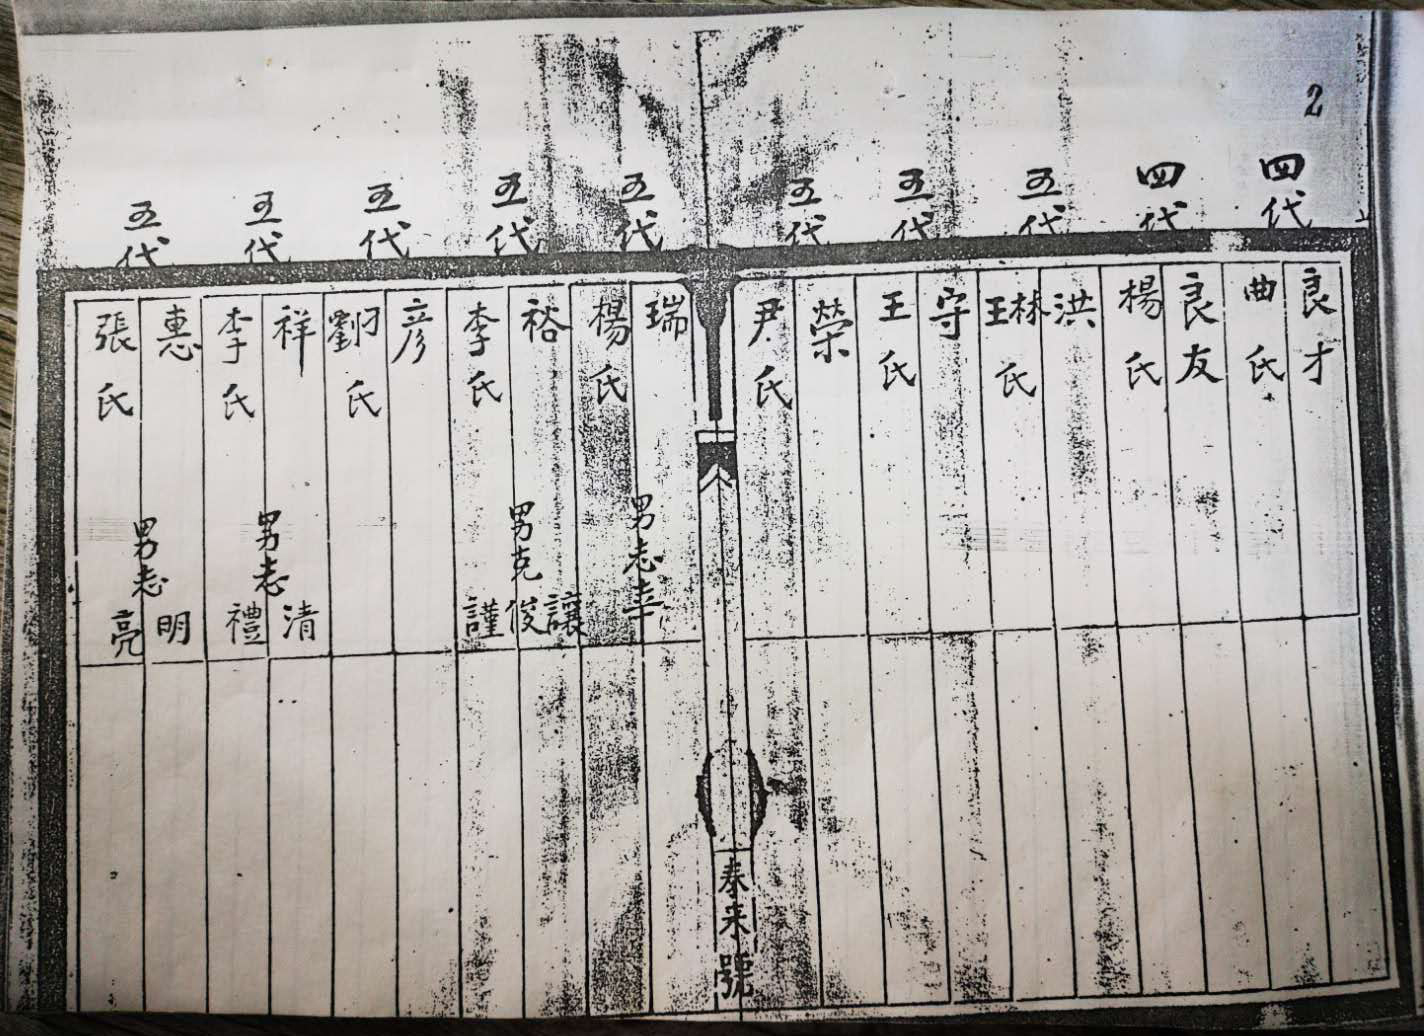 2
四代
良才
曲氏
四代
良友
楊氏
五代
洪
林氏
王
五代
守
王氏
五代
榮
尹氏
五代
瑞
楊氏
男志幸
五代
裕
李氏
男克
讓
俊
謹
五代
彦
劉氏
五代
祥
李氏
男志
清
禮
五代
惠
張氏
男志
明
亮
泰来號